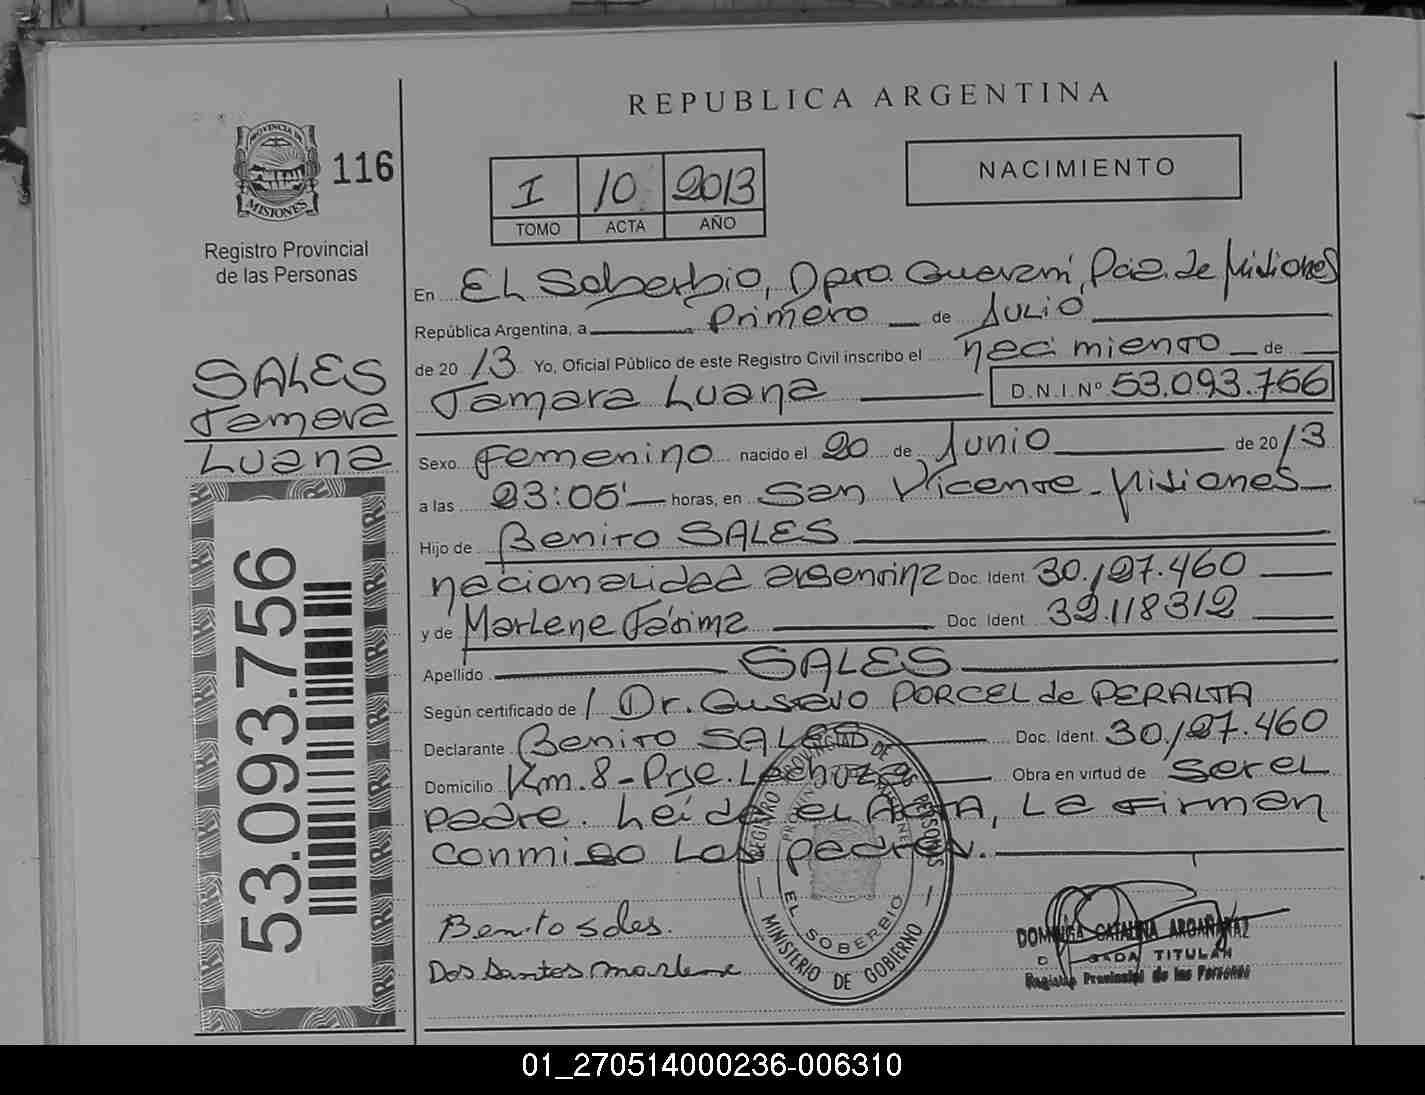 REPUBLICA ARGENTINA
PROVINCIA DE
MISIONES
116
Registro Provincial
de las Personas
I 10 2013
TOMO ACTA AÑO
NACIMIENTO
SALES
Tamara
Luana
53.093.756
En El Soberbio, Dpto. Guaraní, Pcia. de Misiones
República Argentina, a Primero de Julio
de 2013 Yo, Oficial Público de este Registro Civil inscribo el nacimiento de
Tamara Luana D.N.I.Nº 53.093.756
Sexo Femenino nacido el 20 de Junio de 2013
a las 23:05' horas, en San Vicente - Misiones
Hijo de Benito SALES
nacionalidad argentina Doc. Ident. 30.127.460
y de Marlene Fátima Doc. Ident. 32.118312
Apellido SALES
Según certificado de / Dr. Gustavo PORCEL de PERALTA
Declarante Benito SALES Doc. Ident. 30.127.460
Domicilio Km. 8 - Prje. Lechuza Obra en virtud de ser el
padre. Leída el ACTA, La firman
conmigo Los padres.
Benito sales.
Dos Santos marlene
REGISTRO PROVINCIAL DE LAS PERSONAS
EL SOBERBIO
MINISTERIO DE GOBIERNO
DOMINGA CATALINA ARGAÑARAZ
TITULAR
Registro Provincial de las Personas
01_270514000236-006310